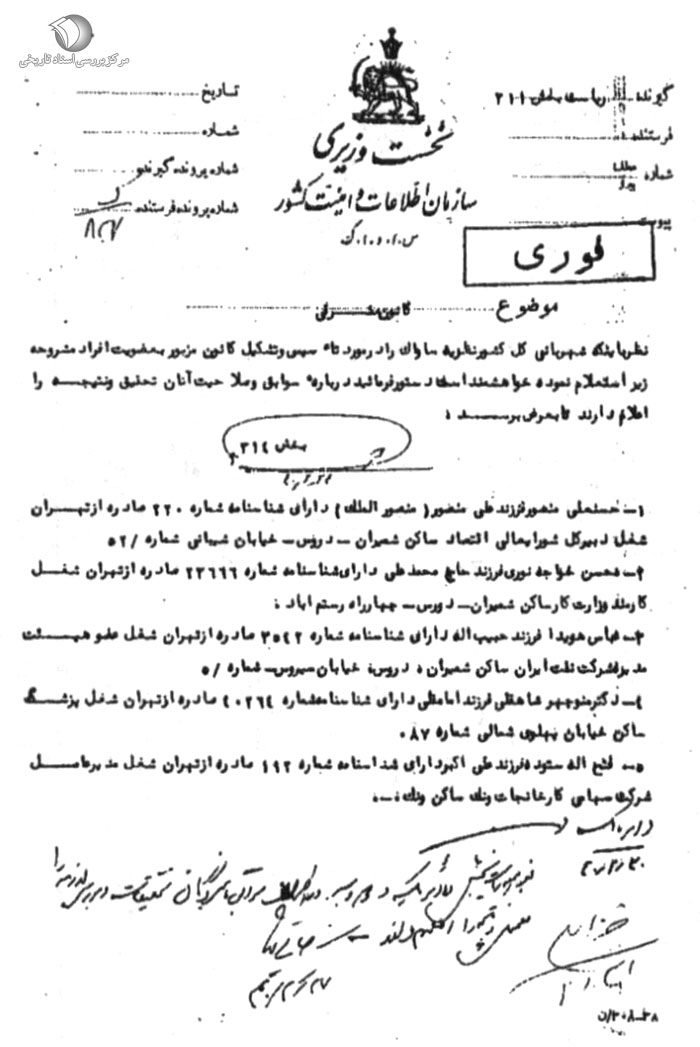 مرکز بررسی اسناد تاریخی
گیرنده ریاست بخش ۲۱۱
فرستنده
شماره
پیوست
نخست وزیری
سازمان اطلاعات و امنیت کشور
س.ا.و.ا.ک
تاریخ
شماره
شماره پرونده گیرنده
شماره پرونده فرستنده
فوری
موضوع کانون مترقی
نظر باینکه شهربانی کل کشور نظریه ساواک را در مورد تاسیس و تشکیل کانون مزبور بعضویت افراد مشروحه
زیر استعلام نموده خواهشمند است دستور فرمائید درباره سوابق و صلاحیت آنان تحقیق و نتیجه را
اعلام دارند تا بعرض برسد :
بخش ۳۱۴
۱- حسنعلی منصور فرزند علی منصور (منصور الملک) دارای شناسنامه شماره ۲۲۰ صادره از تهران
شغل دبیر کل شورایعالی اقتصاد ساکن شمیران - دروس - خیابان شیبانی شماره /۵۲
۲- محسن خواجه نوری فرزند حاج محمد علی دارای شناسنامه شماره ۲۳۶۶۶ صادره از تهران شغل
کارمند وزارت کار ساکن شمیران - دورس - چهارراه رستم آباد :
۳- عباس هویدا فرزند حبیب اله دارای شناسنامه شماره ۳۵۴۲ صادره از تهران شغل عضو هیئت
مدیره شرکت نفت ایران ساکن شمیران : دروس : خیابان سیروس - شماره /۵
۴- دکتر منوچهر شاهقلی فرزند امامقلی دارای شناسنامه شماره ۴۰۲۶۴ صادره از تهران شغل پزشک
ساکن خیابان پهلوی شمالی شماره ۸۷.
۵- فتح اله ستوده فرزند علی اکبر دارای شناسنامه شماره ۱۹۲ صادره از تهران شغل مدیر عامل
شرکت سهامی کارخانجات ونک ساکن ونک :-.